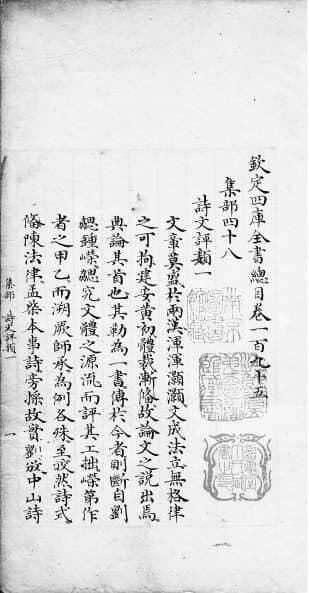 欽定四庫全書總目卷一百九十五
集部四十八
詩文評類一
文章莫盛於兩漢渾渾灝灝文成法立無格律
之可拘建安黃初體裁漸備故論文之說出焉
典論其首也其勒為一書傳於今者則斷自劉
勰鍾嶸勰究文體之源流而評其工拙嶸第作
者之甲乙而溯厥師承為例各殊至皎然詩式
備陳法律孟棨本事詩旁採故實劉攽中山詩
集部 詩文評類 一